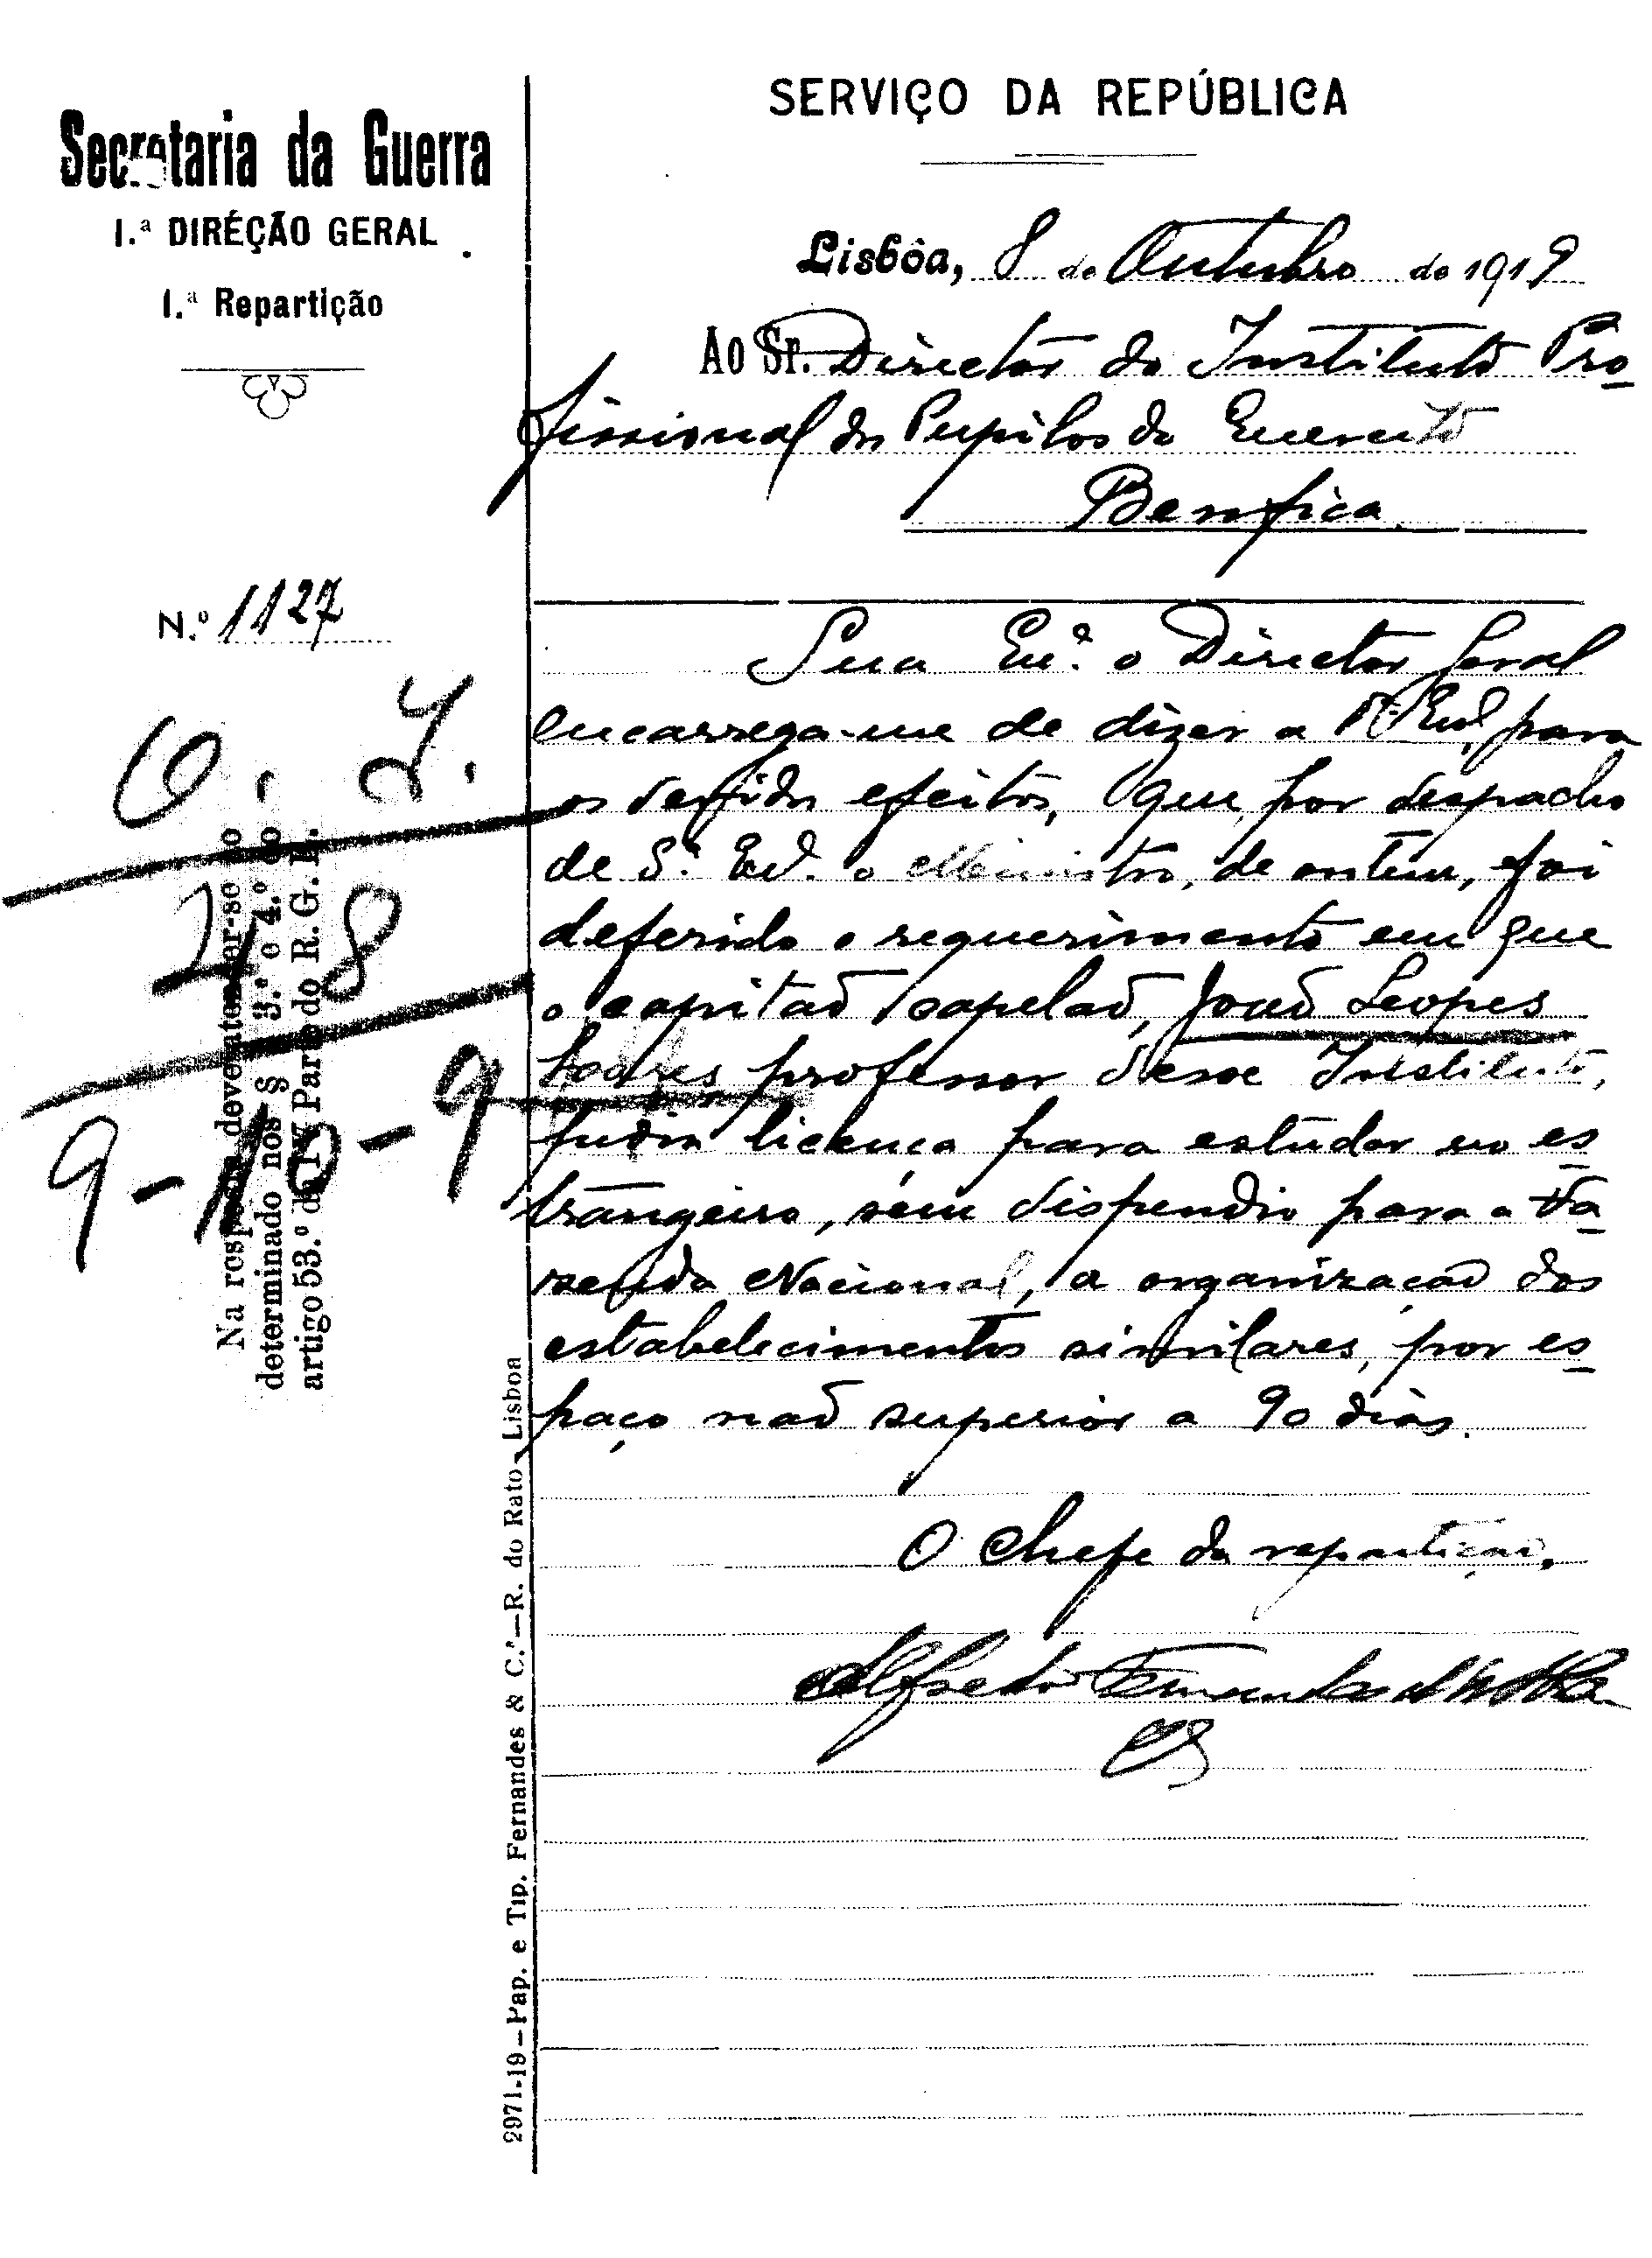 SERVIÇO DA REPÚBLICA
Secretaria da Guerra
1.ª DIRÉÇÃO GERAL
1.ª Repartição
Lisbôa, 8 de Outubro de 1919
Ao Sr. Director do Instituto Pro-
fissional dos Pupilos do Exercito
Benfica.
N.º 1127
Sua Ex.ª o Director Geral
encarrega-me de dizer a V. Ex.ª, para
os devidos efeitos, que, por despacho
de S.ª Ex.ª o Ministro, de ontem, foi
deferido o requerimento em que
o capitão capelão, João Lopes
Soares professor desse Instituto,
pedia licença para estudar no es-
trangeiro, sem dispendio para a Fa-
zenda Nacional, a organização dos
estabelecimentos similares, por es-
paço não superior a 90 dias.
O Chefe da repartição,
Alfredo
O. I.
28
9-10-9
Na resposta deverá atender-se ao
determinado nos § § 3.º e 4.º do
artigo 53.º da IV Parte do R. G. E.
2971-19—Pap. e Tip. Fernandes & C.ª—R. do Rato—Lisboa